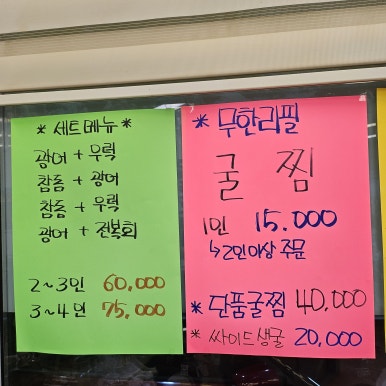 * 세트메뉴 *
광어 + 우럭
참돔 + 광어
참돔 + 우럭
광어 + 전복회
2~3인 60,000
3~4인 75,000
* 무한리필
굴 찜
1인 15.000
↳2인이상 주문
* 단품굴찜 40,000
* 싸이드생굴 20,000